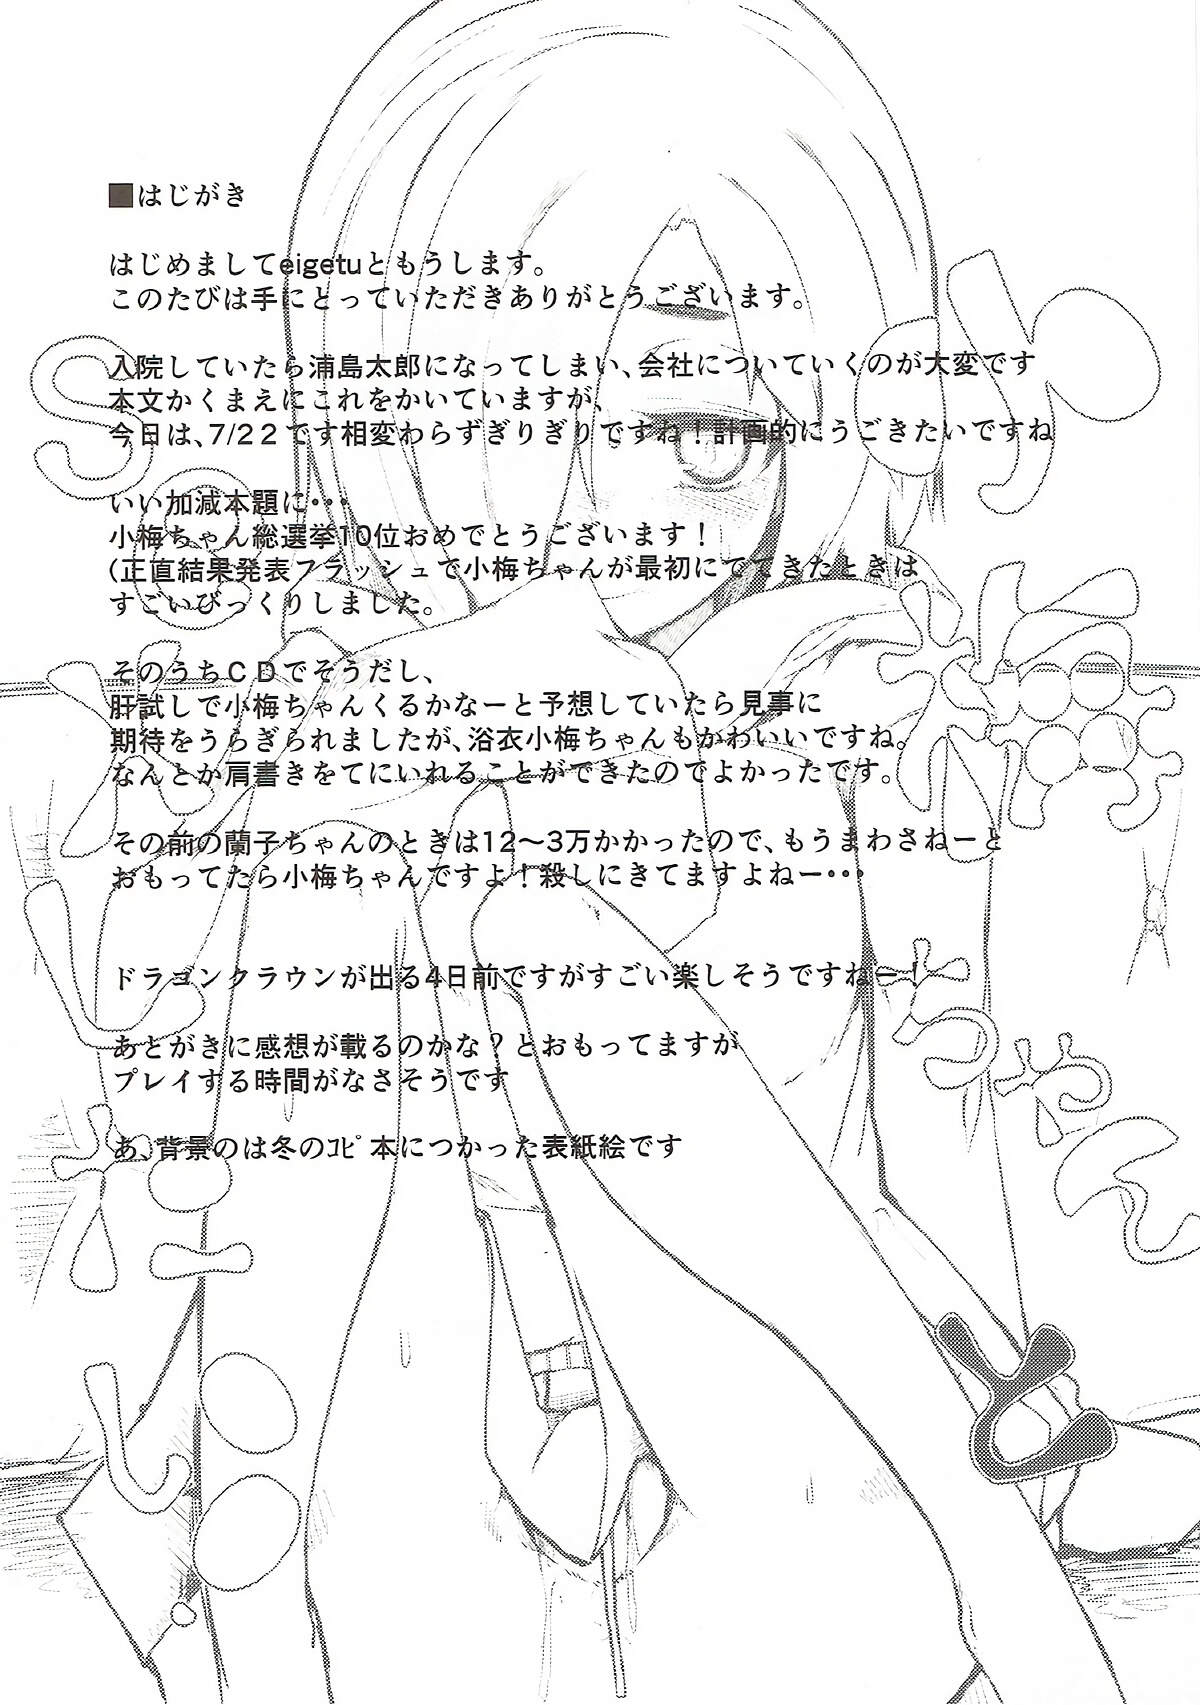 ■はじがき
はじめましてeigetuともうします。
このたびは手にとっていただきありがとうございます。
入院していたら浦島太郎になってしまい、会社についていくのが大変です
本文かくまえにこれをかいていますが、
今日は、7/22です相変わらずぎりぎりですね！計画的にうごきたいですね
いい加減本題に・・・
小梅ちゃん総選挙10位おめでとうございます！
(正直結果発表フラッシュで小梅ちゃんが最初にでてきたときは
すごいびっくりしました。
そのうちＣＤでそうだし、
肝試しで小梅ちゃんくるかなーと予想していたら見事に
期待をうらぎられましたが、浴衣小梅ちゃんもかわいいですね。
なんとか肩書きをてにいれることができたのでよかったです。
その前の蘭子ちゃんのときは12～3万かかったので、もうまわさねーと
おもってたら小梅ちゃんですよ！殺しにきてますよねー・・・
ドラゴンクラウンが出る4日前ですがすごい楽しそうですねー！
あとがきに感想が載るのかな？とおもってますが
プレイする時間がなさそうです
あ、背景のは冬のｺﾋﾟ本につかった表紙絵です